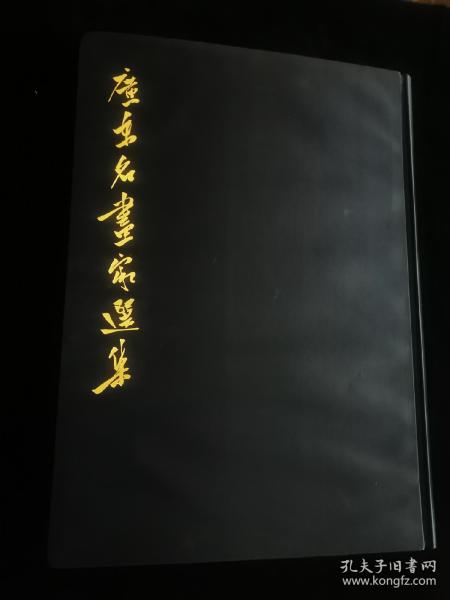 廣东名畫家選集
孔夫子旧书网
www.kongfz.com